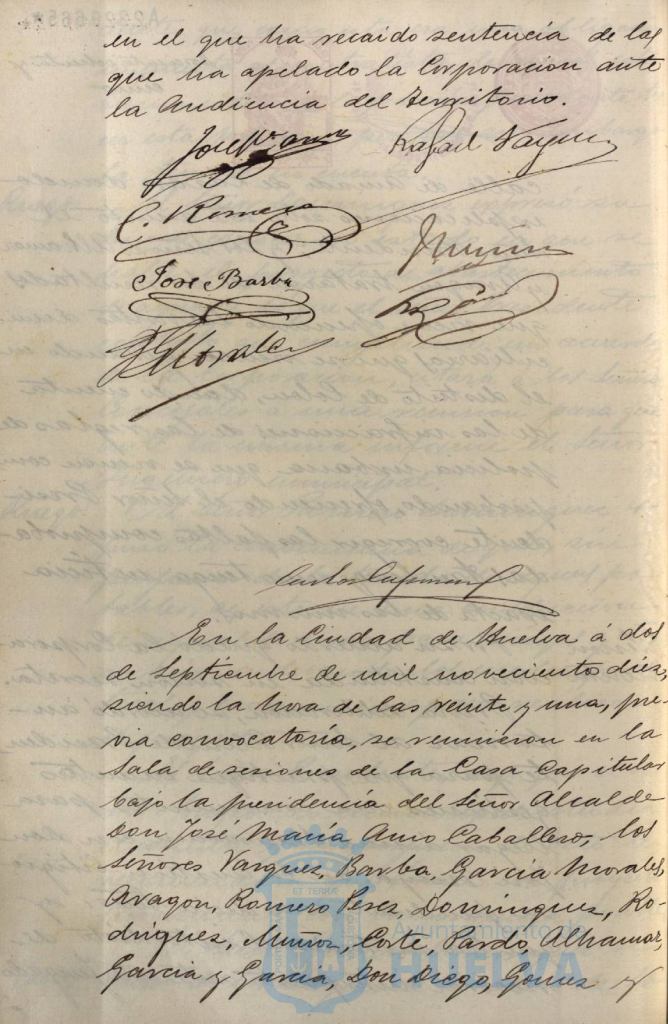 en el que ha recaido sentencia de las
que ha apelado la Corporacion ante
la Audiencia del territorio.
Rafael Vazquez
C. Romero
Jose Barba
Morales
En la Ciudad de Huelva á dos
de Septiembre de mil novecientos diez,
siendo la hora de las veinte y una, pre-
via convocatoría, se reunieron en la
Sala de sesiones de la Casa Capitular
bajo la presidencia del Señor Alcalde
Don José María Amo Caballero, los
Señores Vazquez, Barba, Garcia Morales,
Aragon, Romero Perez, Dominguez, Ro-
driguez, Muñoz, Corte, Pardo, Alhamar,
Garcia y Garcia, Don Diego, Gomez y
Ayuntamiento de
HUELVA